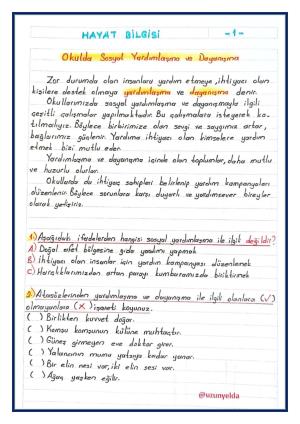 HAYAT BİLGİSİ -1-
Okulda Sosyal Yardımlaşma ve Dayanışma
Zor durumda olan insanlara yardım etmeye, ihtiyacı olan
kişilere destek olmaya yardımlaşma ve dayanışma denir.
Okullarımızda sosyal yardımlaşma ve dayanışmayla ilgili
çeşitli çalışmalar yapılmaktadır. Bu çalışmalara isteyerek ka-
tılmalıyız. Böylece birbirimize olan sevgi ve saygımız artar,
bağlarımız güçlenir. Yardıma ihtiyacı olan kimselere yardım
etmek bizi mutlu eder.
Yardımlaşma ve dayanışma içinde olan toplumlar, daha mutlu
ve huzurlu olurlar.
Okullarda da ihtiyaç sahipleri belirlenip yardım kampanyaları
düzenlenir. Böylece sorunlara karşı duyarlı ve yardımsever bireyler
olarak yetişiriz.
1. Aşağıdaki ifadelerden hangisi sosyal yardımlaşma ile ilgili değildir?
A) Doğal afet bölgesine gıda yardımı yapmak
B) İhtiyacı olan insanlar için yardım kampanyası düzenlemek
C) Harçlıklarımızdan artan parayı kumbaramızda biriktirmek
2. Atasözlerinden yardımlaşma ve dayanışma ile ilgili olanlara (✓)
olmayanlara (X) işareti koyunuz.
( ) Birlikten kuvvet doğar.
( ) Komşu komşunun külüne muhtaçtır.
( ) Güneş girmeyen eve doktor girer.
( ) Yalancının mumu yatsıya kadar yanar.
( ) Bir elin nesi var, iki elin sesi var.
( ) Ağaç yaşken eğilir.
@uzunyelda